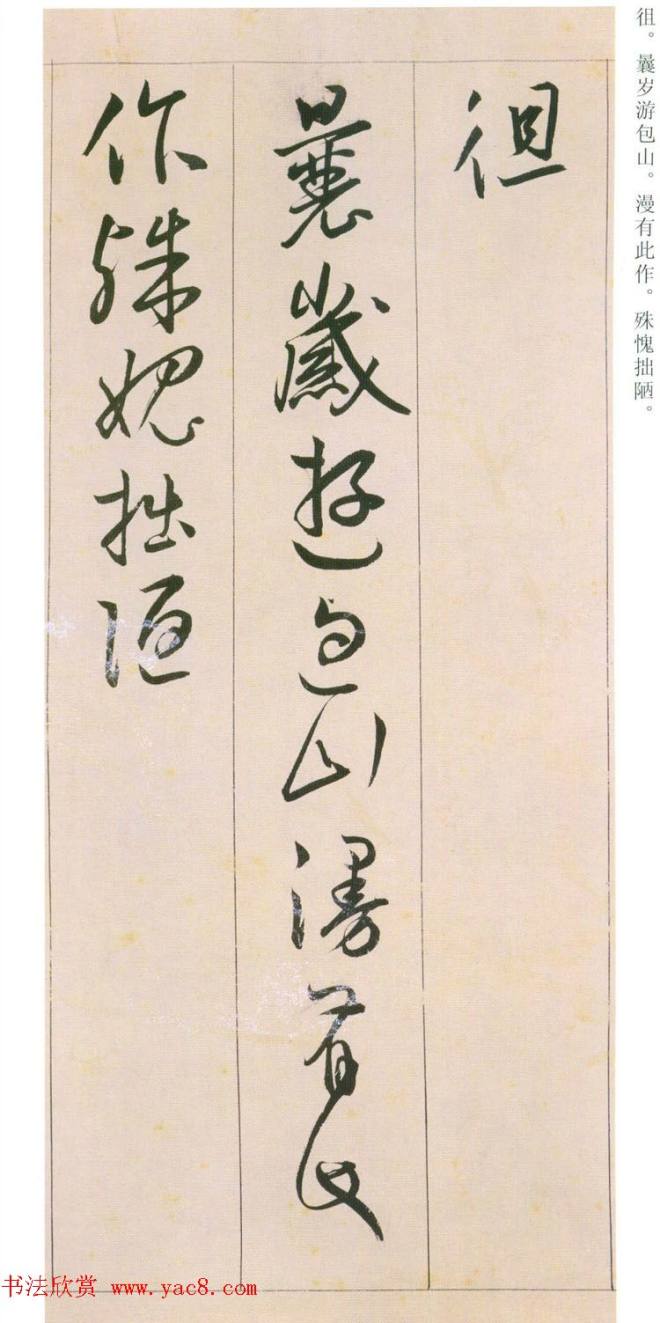 徂。曩岁游包山。漫有此作。殊愧拙陋。
徂
曩歲遊包山漫有此
作殊媿拙陋
书法欣赏 www.yac8.com